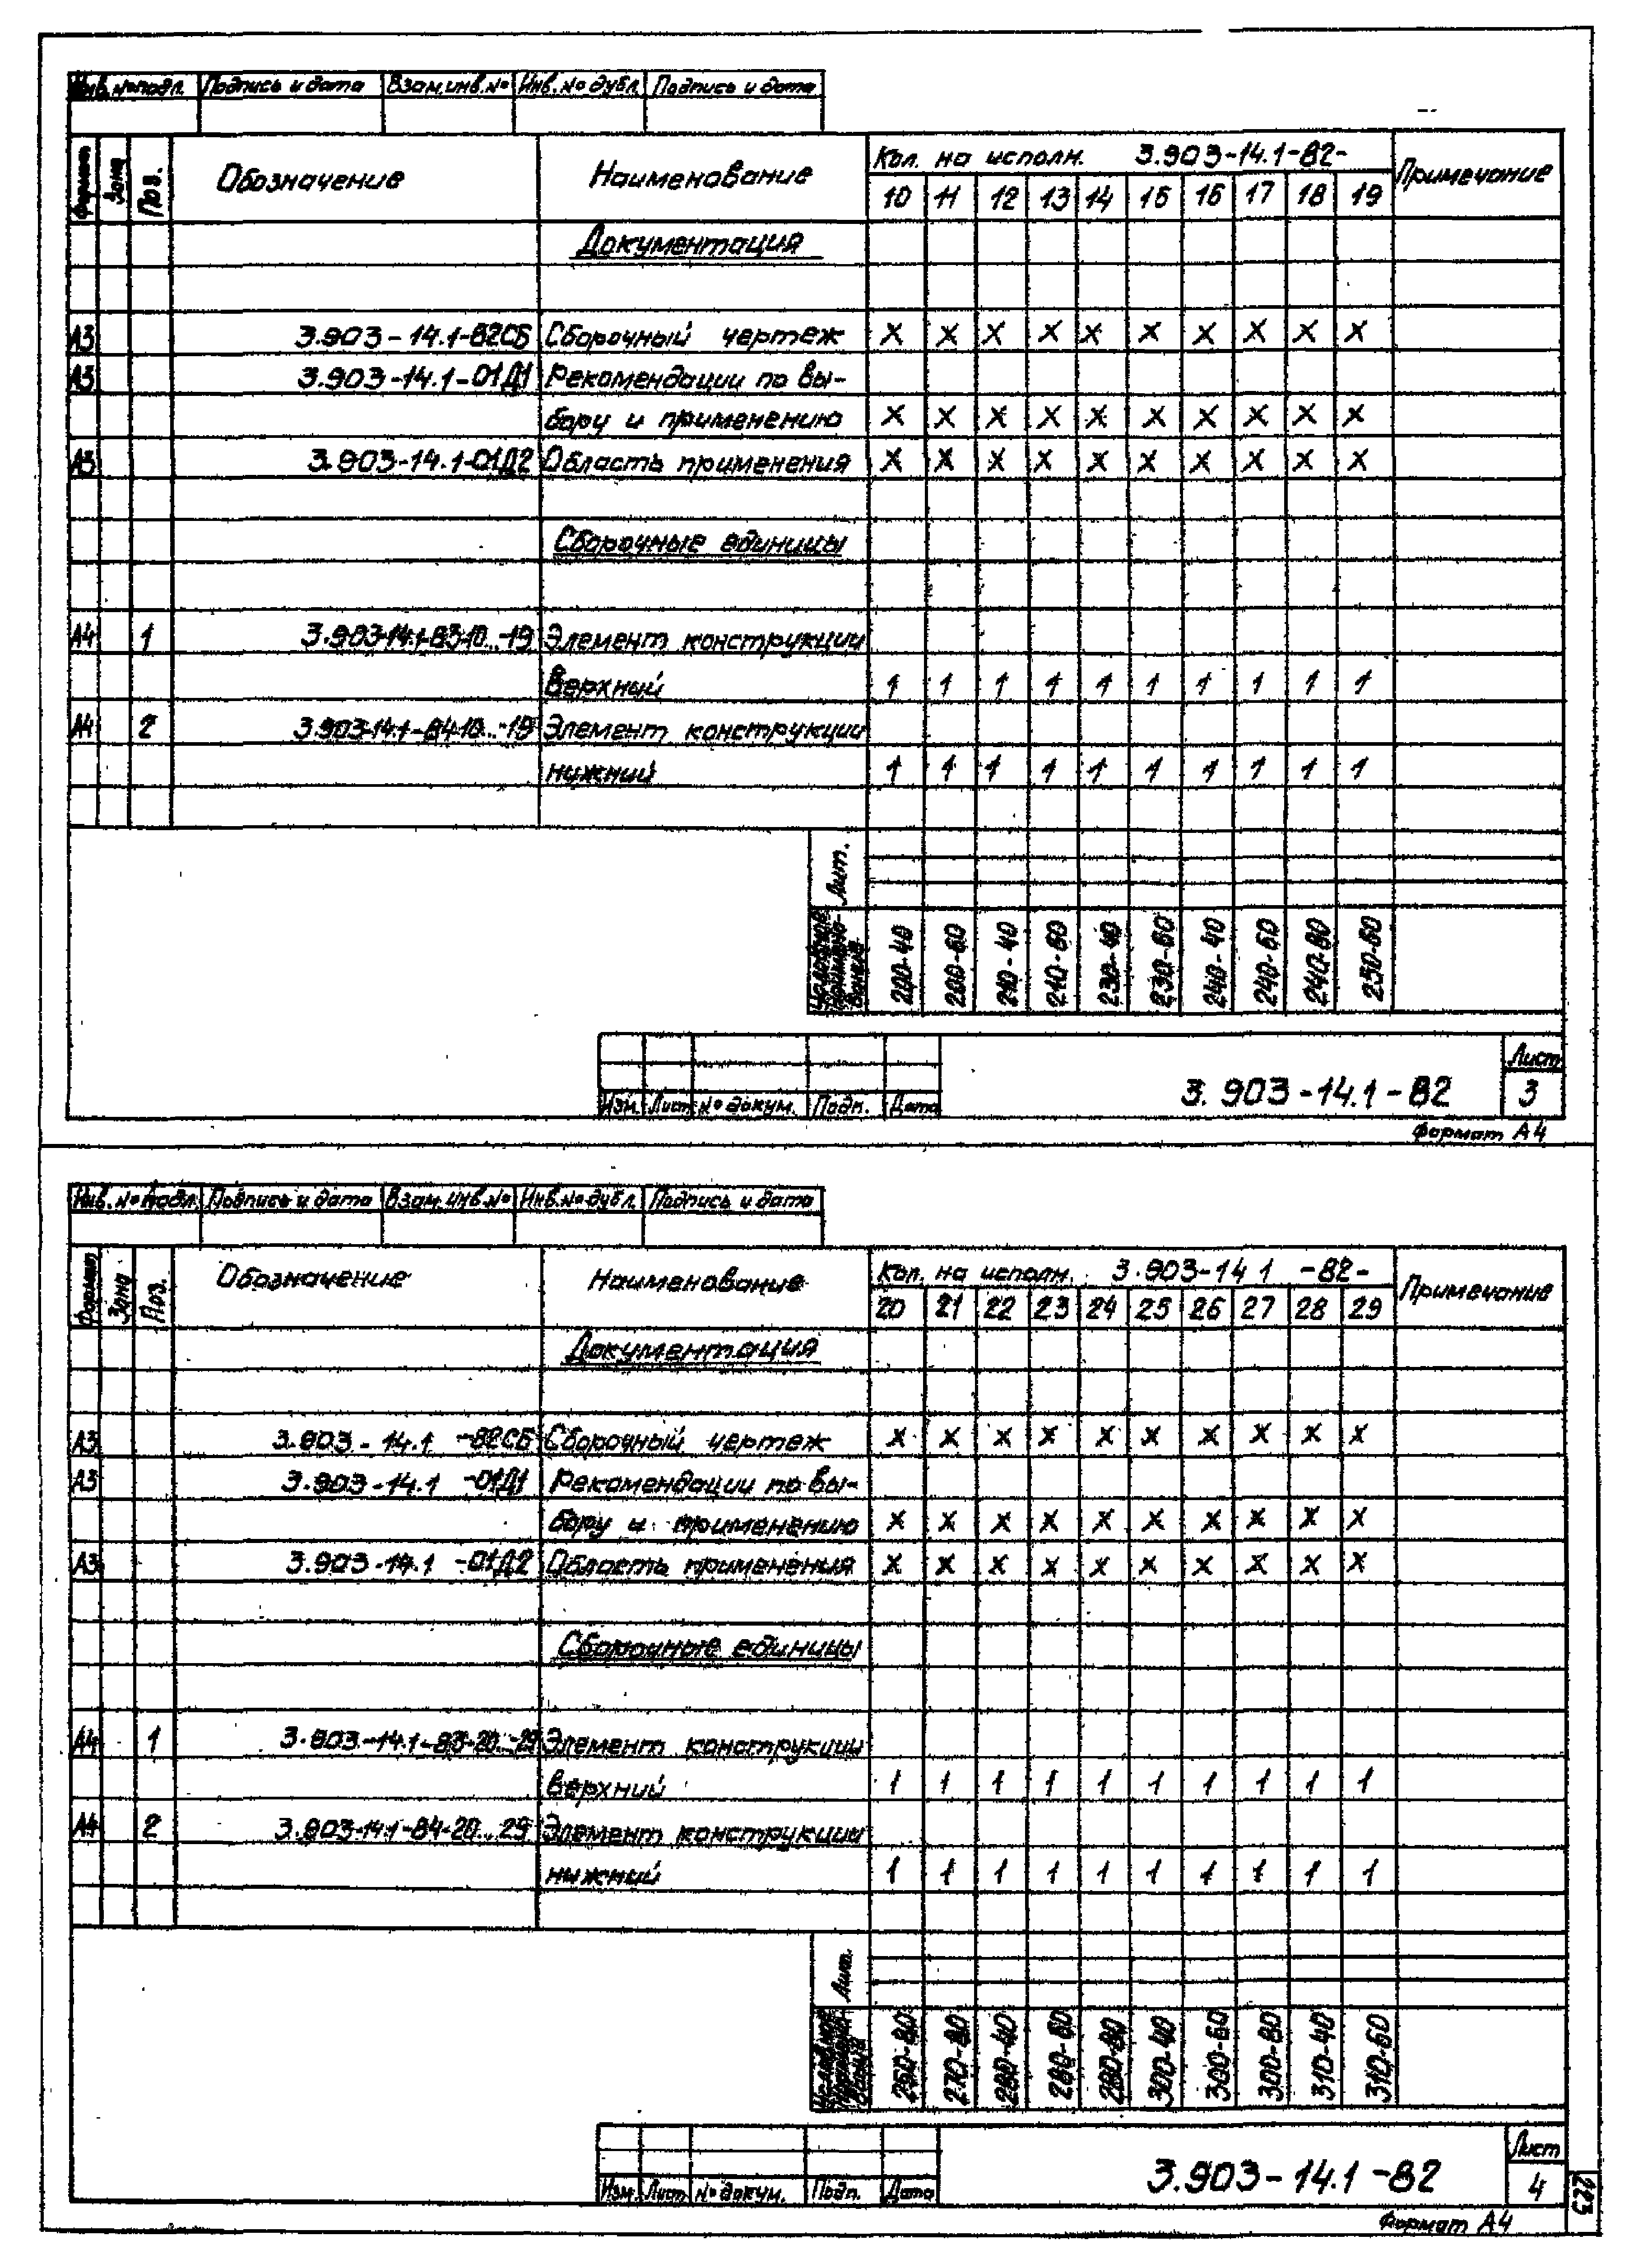 Инв. № подл. Подпись и дата Взам. инв. № Инв. № дубл. Подпись и дата
Формат Зона Поз. Обозначение Наименование Кол. на исполн. 3.903-14.1-82- Примечание
10 11 12 13 14 15 16 17 18 19
Документация
А3 3.903-14.1-82СБ Сборочный чертеж X X X X X X X X X X
А3 3.903-14.1-01Д1 Рекомендации по вы-
бору и применению X X X X X X X X X X
А3 3.903-14.1-01Д2 Область применения X X X X X X X X X X
Сборочные единицы
А4 1 3.903-14.1-83-10...-19 Элемент конструкции
верхний 1 1 1 1 1 1 1 1 1 1
А4 2 3.903-14.1-84-10...-19 Элемент конструкции
нижний 1 1 1 1 1 1 1 1 1 1
Лит.
200-40 200-60 210-40 210-60 230-40 230-60 240-40 240-60 240-80 250-60
Изм. Лист № докум. Подп. Дата 3.903-14.1-82 Лист 3
Формат А4
Инв. № подл. Подпись и дата Взам. инв. № Инв. № дубл. Подпись и дата
Формат Зона Поз. Обозначение Наименование Кол. на исполн. 3.903-14 1 -82- Примечание
20 21 22 23 24 25 26 27 28 29
Документация
А3 3.903-14.1 -82СБ Сборочный чертеж X X X X X X X X X X
А3 3.903-14.1 -01Д1 Рекомендации по вы-
бору и применению X X X X X X X X X X
А3 3.903-14.1 -01Д2 Область применения X X X X X X X X X X
Сборочные единицы
А4 1 3.903-14.1-83-20...-29 Элемент конструкции
верхний 1 1 1 1 1 1 1 1 1 1
А4 2 3.903-14.1-84-20...29 Элемент конструкции
нижний 1 1 1 1 1 1 1 1 1 1
Лит.
270-80 280-40 280-60 280-80 300-40 300-60 300-80 310-40 310-60
Изм. Лист № докум. Подп. Дата 3.903-14.1-82 Лист 4
Формат А4